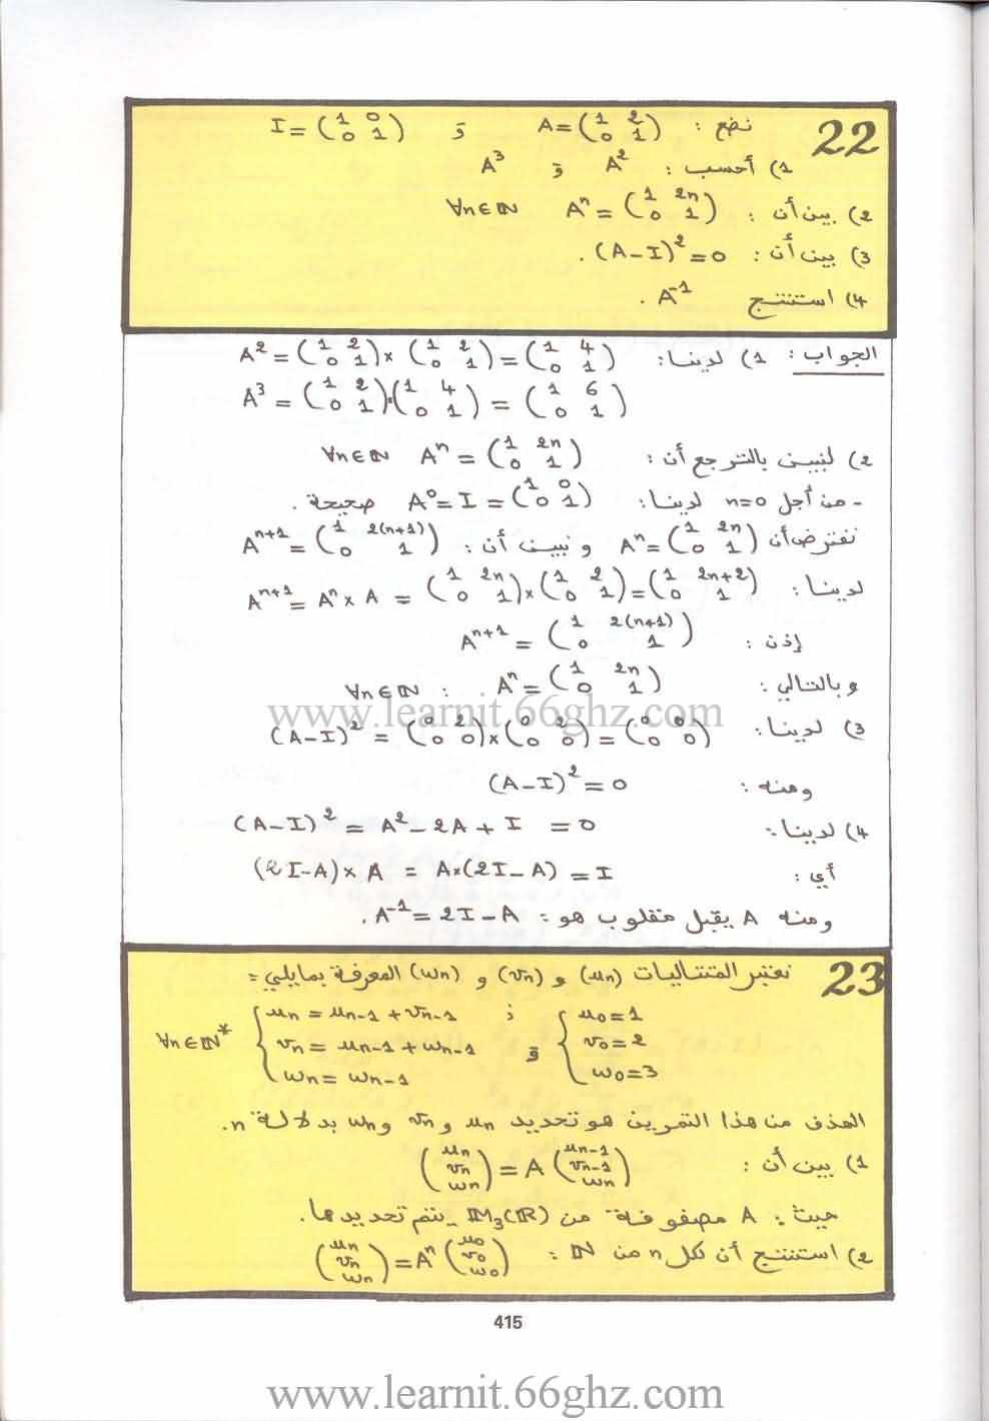 22 نضع : A=(1 2 ; 0 1) و I=(1 0 ; 0 1)
1) أحسب : A² و A³
2) بين أن : Aⁿ=(1 2n ; 0 1) ∀n∈ℕ
3) بين أن : (A-I)²=0 .
4) استنتج A⁻¹ .
الجواب : 1) لدينا : A²=(1 2 ; 0 1)×(1 2 ; 0 1)=(1 4 ; 0 1)
A³=(1 2 ; 0 1)(1 4 ; 0 1)=(1 6 ; 0 1)
2) لنبين بالترجع أن : Aⁿ=(1 2n ; 0 1) ∀n∈ℕ
- من أجل n=0 لدينا : A⁰=I=(1 0 ; 0 1) صحيحة .
نفترض أن Aⁿ=(1 2n ; 0 1) و نبين أن : Aⁿ⁺¹=(1 2(n+1) ; 0 1)
لدينا : Aⁿ⁺¹=Aⁿ×A=(1 2n ; 0 1)×(1 2 ; 0 1)=(1 2n+2 ; 0 1)
إذن : Aⁿ⁺¹=(1 2(n+1) ; 0 1)
وبالتالي : Aⁿ=(1 2n ; 0 1) . : ∀n∈ℕ
www.learnit.66ghz.com
3) لدينا : (A-I)²=(0 2 ; 0 0)×(0 2 ; 0 0)=(0 0 ; 0 0)
ومنه : (A-I)²=0
4) لدينا : (A-I)²=A²-2A+I=0
أي : (2I-A)×A=A×(2I-A)=I
ومنه A يقبل مقلوب هو : A⁻¹=2I-A .
23 نعتبر المتتاليات (uₙ) و (vₙ) و (wₙ) المعرفة بمايلي :
{u₀=1 ; {uₙ=uₙ₋₁+vₙ₋₁
v₀=2 و vₙ=uₙ₋₁+wₙ₋₁ ∀n∈ℕ*
w₀=3 wₙ=wₙ₋₁
الهذف من هذا التمرين هو تحديد uₙ و vₙ و wₙ بدلالة n.
1) بين أن : (uₙ ; vₙ ; wₙ)=A(uₙ₋₁ ; vₙ₋₁ ; wₙ)
حيث : A مصفوفة من M₃(ℝ) يتم تحديدها.
2) استنتج أن لكل n من ℕ : (uₙ ; vₙ ; wₙ)=Aⁿ(u₀ ; v₀ ; w₀)
415
www.learnit.66ghz.com